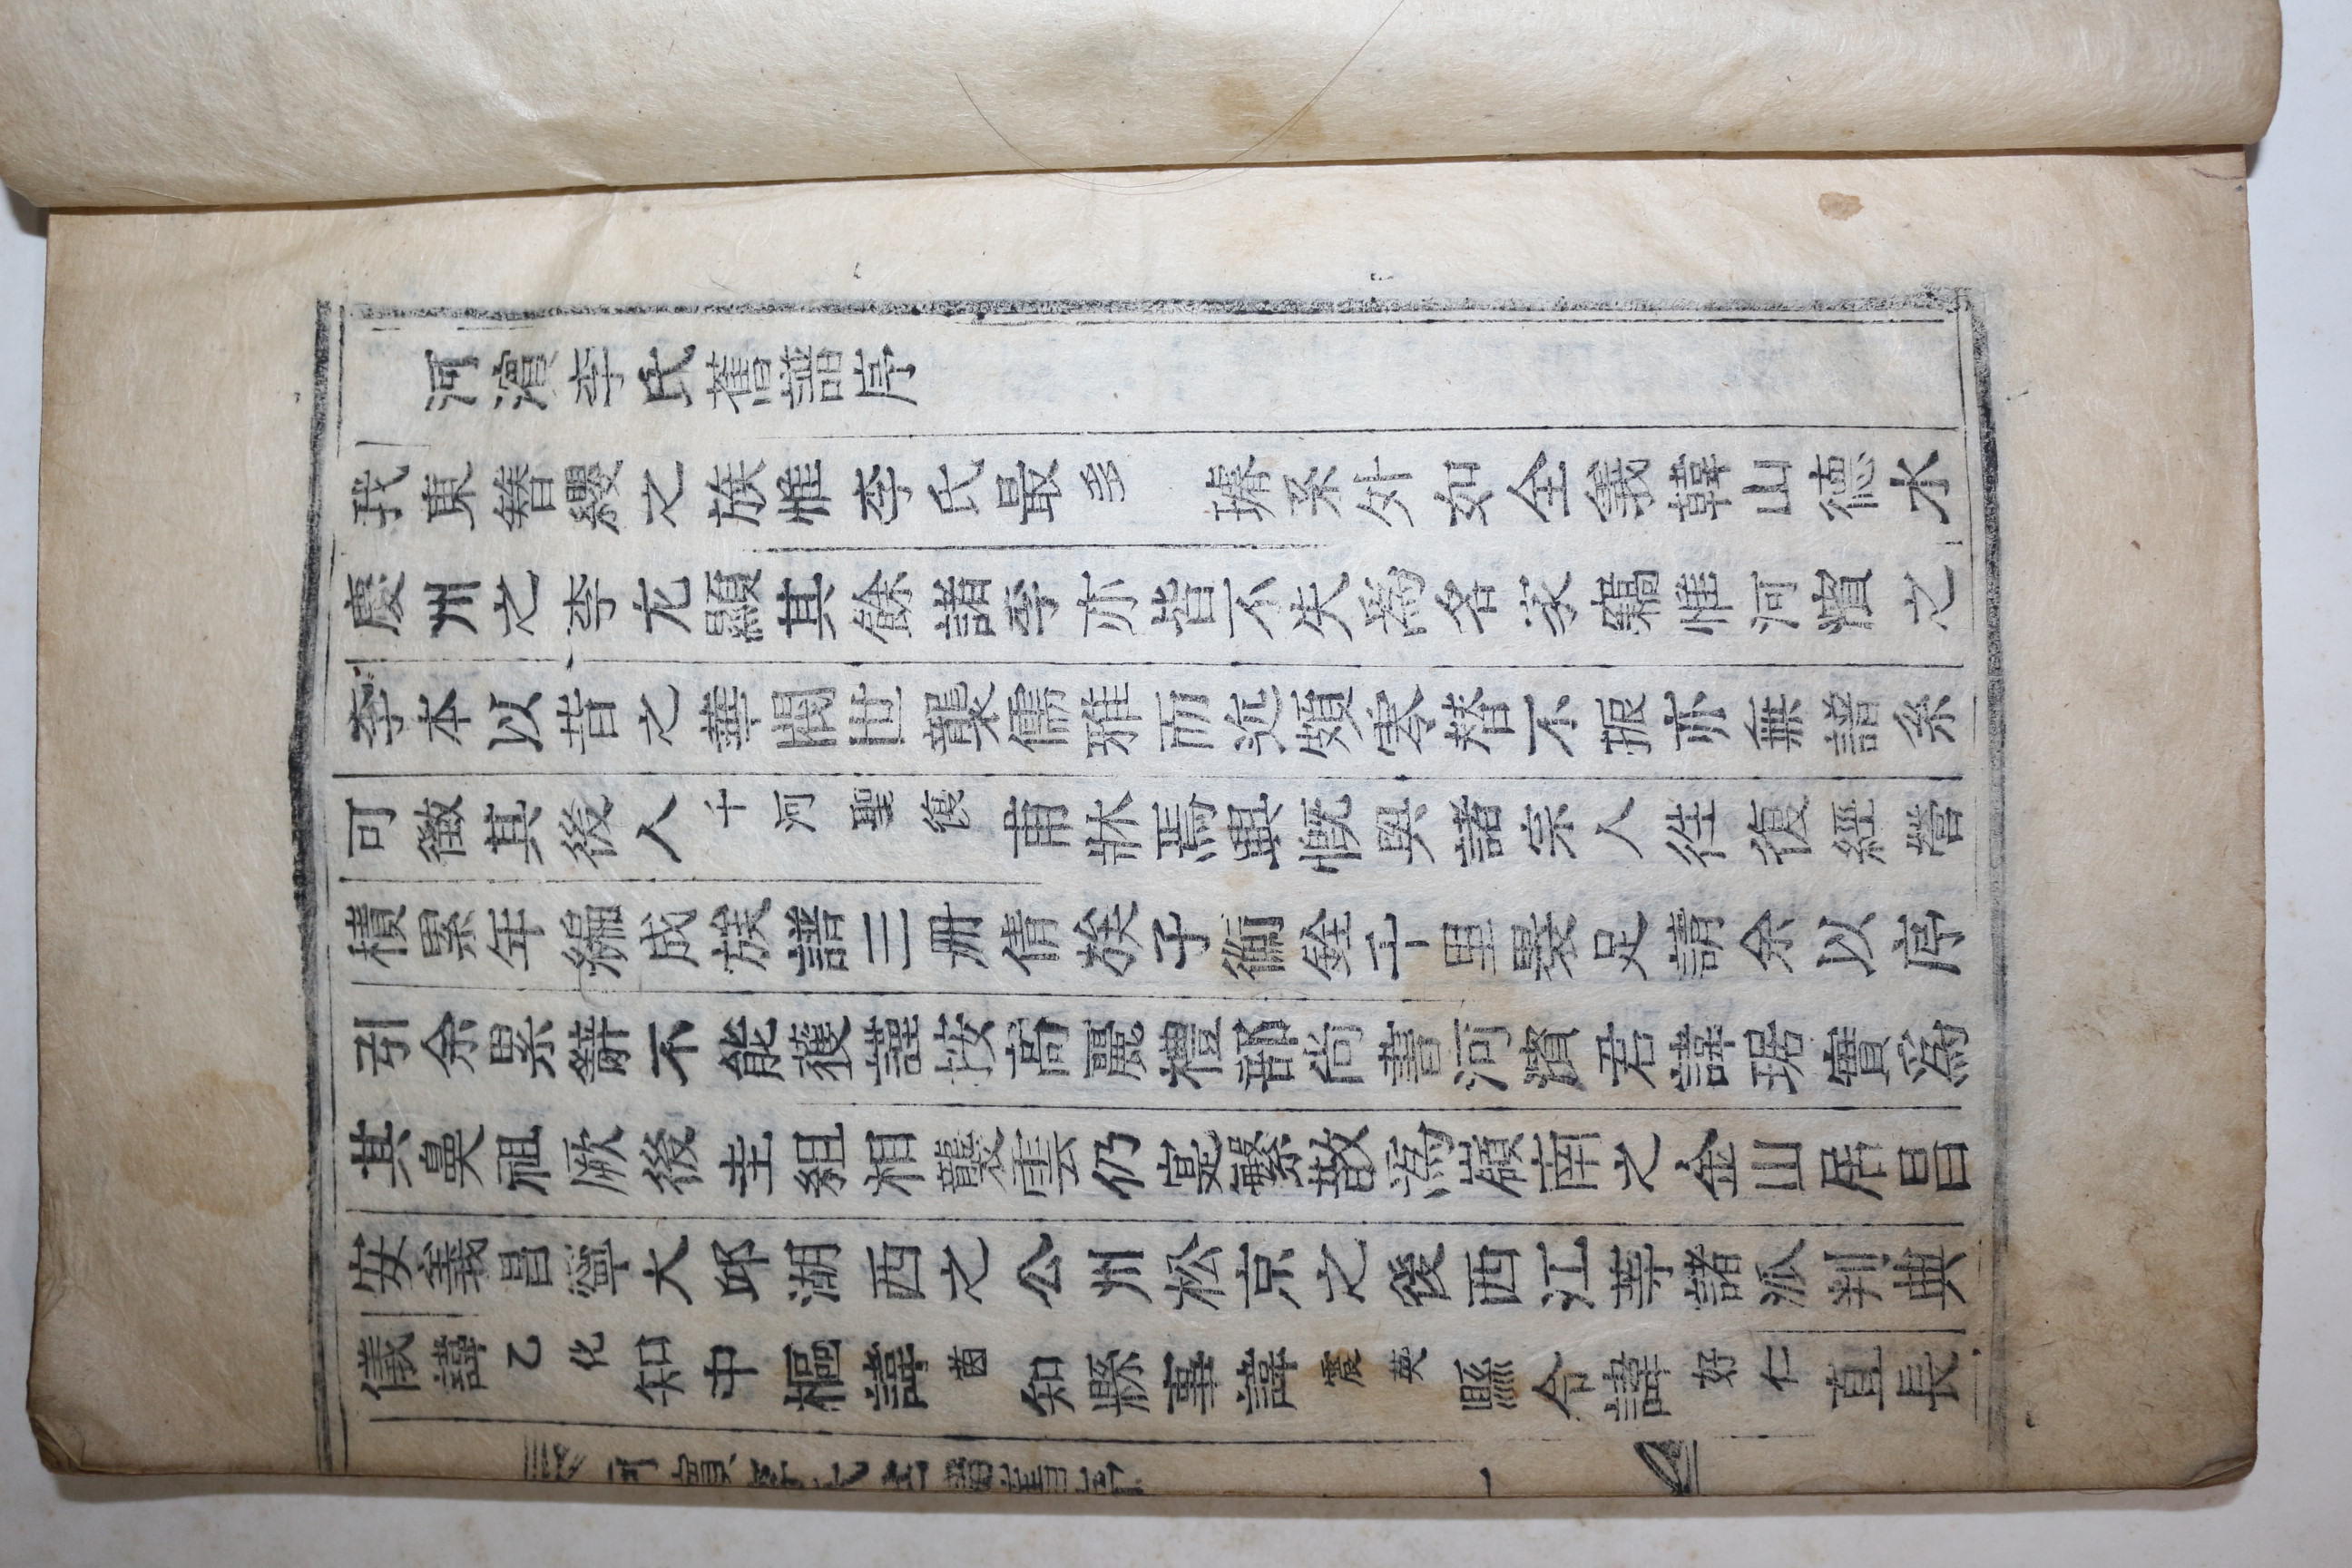 河濱李氏舊譜序
我東簪纓之族惟李氏最多 璿系外如全義韓山德水
慶州之李尤顯其餘諸李亦皆不失爲名家獨惟河濱之
李本以昔之華閥世襲儒雅而近頗零替不振亦無譜系
可徵其後人千河聖復甫怵焉興慨與諸宗人徃復經營
積累年編成族譜三冊倩族子衡銓千里裂足請余以序
引余累辭不能獲謹按高麗禮部尙書河濱君諱琚實爲
其鼻祖厥後圭組相襲雲仍寔繁散爲嶺南之金山居昌
安義昌寧大邱湖西之公州松京之後西江等諸派判典
儀諱乙化知中樞諱茵知縣事諱震英縣令諱好仁直長